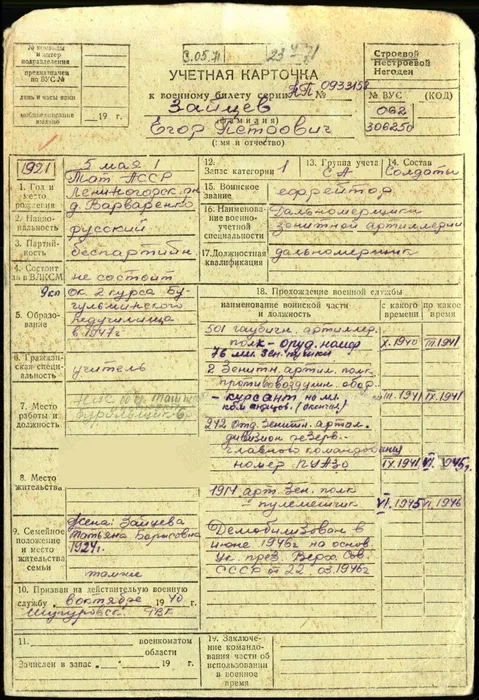 3.05.71
23
Строевой
Нестроевой
Негоден
УЧЕТНАЯ КАРТОЧКА
к военному билету серии НП № 0933158
№ ВУС
(КОД)
Зайцев
(фамилия)
062
306250
Егор Петрович
(имя и отчество)
№ команды
и литер
подразделения
предназначен
по ВУС №
день и часы явки
19 г.
1921
5 мая
1. Год и место рождения
Тат АССР
Лениногорск. р-н
д. Варваренко
2. Национальность
русский
3. Партийность
беспартийн.
4. Состоит ли в ВЛКСМ
не состоит
5. Образование
9кл
ок 2 курса Бугульминского
педучилища
в 1947г
6. Гражданская специальность
учитель
7. Место работы и должность
8. Место жительства
9. Семейное положение и место жительства семьи
Жена: Зайцева
Татьяна Борисовна
1924г.
10. Призван на действительную военную
службу в октябре 1940 г.
Шугуровск. РВК
11. военкоматом
области
Зачислен в запас „ “ 19 г.
12. Запас категории 1
13. Группа учета СА
14. Состав Солдаты
15. Воинское звание ефрейтор
16. Наименование военно-учетной специальности
Дальномерщики
зенитной артиллерии
17. Должностная квалификация
дальномерщик
18. Прохождение военной службы
наименование воинской части и должность
с какого времени
по какое время
501 гаубичн. артиллер.
полк - оруд. номер
76 мм. зен. пушки
X.1940
III.1941
2 Зенитн. артил. полк
противовоздушн. обор.
- курсант
III.1941
IX.1941
242 отд. зенитн. артил.
дивизион резерв.
главного командования
номер ПУАЗО
IX.1941
VI.1945г.
1917 арт. зен. полк
- пулеметчик
VI.1945
VI.1946
Демобилизован в
июне 1946г на основ.
Ук. през. Верх. Сов.
СССР от 22.03.1946г
19. Заключение
командования части об
использовании
в военное
время